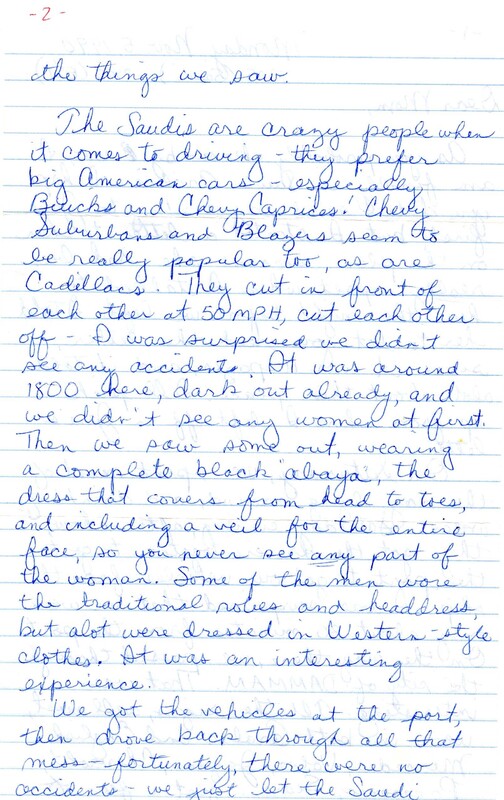 -2-
the things we saw.
The Saudis are crazy people when
it comes to driving - they prefer
big American cars - especially
Buicks and Chevy Caprices! Chevy
Suburbans and Blazers seem to
be really popular too, as are
Cadillacs. They cut in front of
each other at 50 MPH, cut each other
off - I was surprised we didn't
see any accidents. It was around
1800 here, dark out already, and
we didn't see any women at first.
Then we saw some out, wearing
a complete black "abaya", the
dress that covers from head to toes,
and including a veil for the entire
face, so you never see any part of
the woman. Some of the men wore
the traditional robes and headdress,
but alot were dressed in Western-style
clothes. It was an interesting
experience.
We got the vehicles at the port,
then drove back through all that
mess - fortunately, there were no
accidents - we just let the Saudi